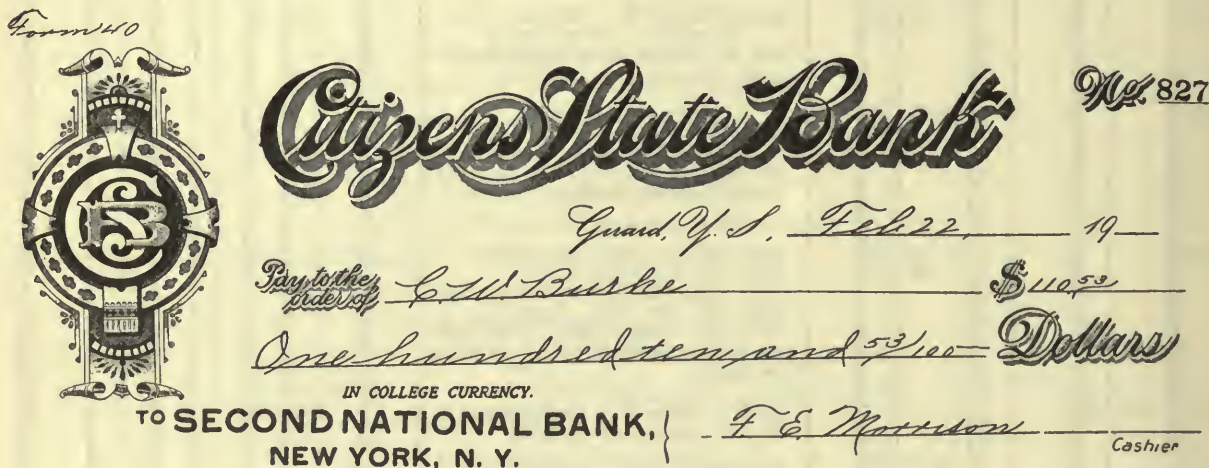 Form 40
Citizens State Bank
No. 827
Guard, Y. S. Feb 22, 19
Pay to the order of C. W. Burke $110.53
One hundred ten, and 53/100 Dollars
IN COLLEGE CURRENCY.
TO SECOND NATIONAL BANK,
NEW YORK, N. Y.
F. E. Morrison
Cashier